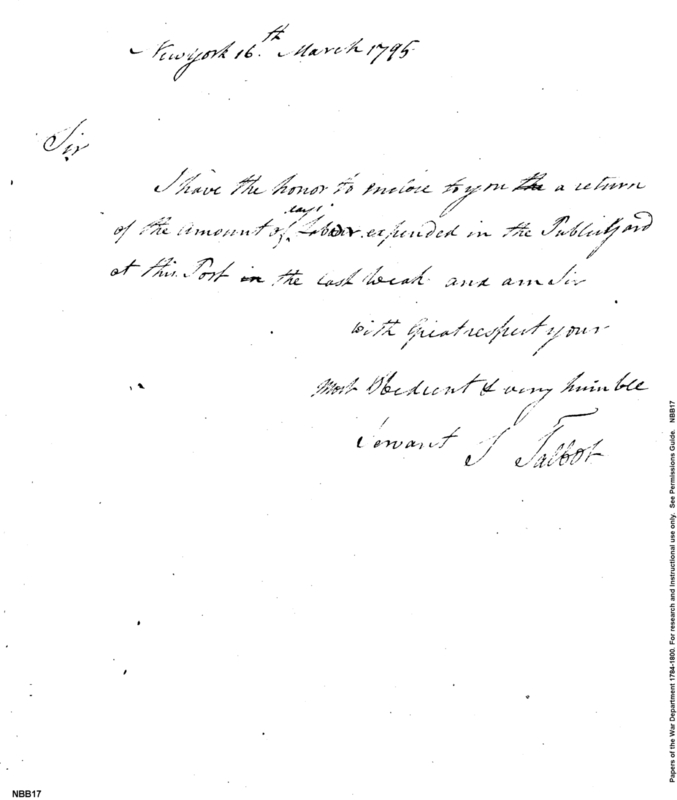 Newyork 16.th March 1795.
Sir
I have the honor to enclose to you the a return
days
of the amount of Labour expended in the Public Yard
at this Port in the last Weak and am Sir
with Great respect your
Most Obedient & very humble
Servant S Talbot
Papers of the War Department 1784-1800. For research and instructional use only. See Permissions Guide. NBB17
NBB17